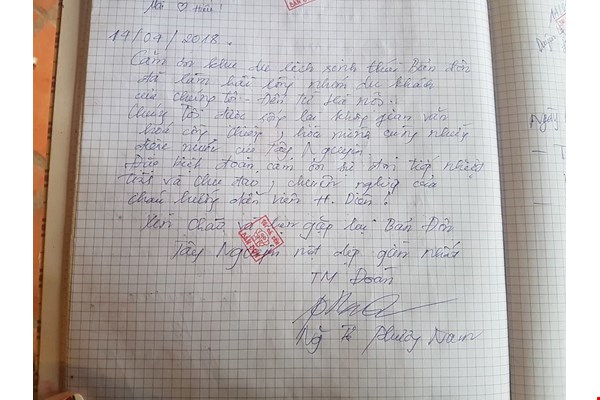 14/04/2018.
Cảm ơn khu du lịch sinh thái Bản Đôn
đã làm hài lòng nhóm du khách
của chúng tôi - Đến từ Hà Nội.
Chúng tôi được sống lại không gian văn
hoá cồng chiêng, hòa mình cùng những
điệu múa của Tây Nguyên.
Đặc biệt đoàn cảm ơn sự đón tiếp nhiệt
tình và chu đáo, chuyên nghiệp của
cháu hướng dẫn viên H.
Xin chào và hẹn gặp lại Bản Đôn
Tây Nguyên một dịp gần nhất
TM Đoàn
Ng T Phương Nam
Ngày